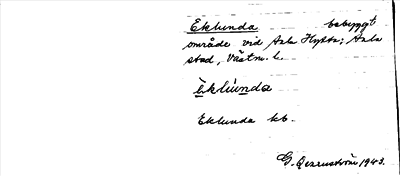 Eklunda bebyggt
område vid Sala Hytta; Sala
stad, Västm. l.
èklúnda
Eklunda kb.
G. Qvarnström 1943.